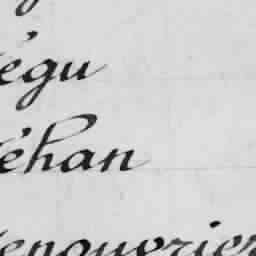 égu
éhan
enouvrier